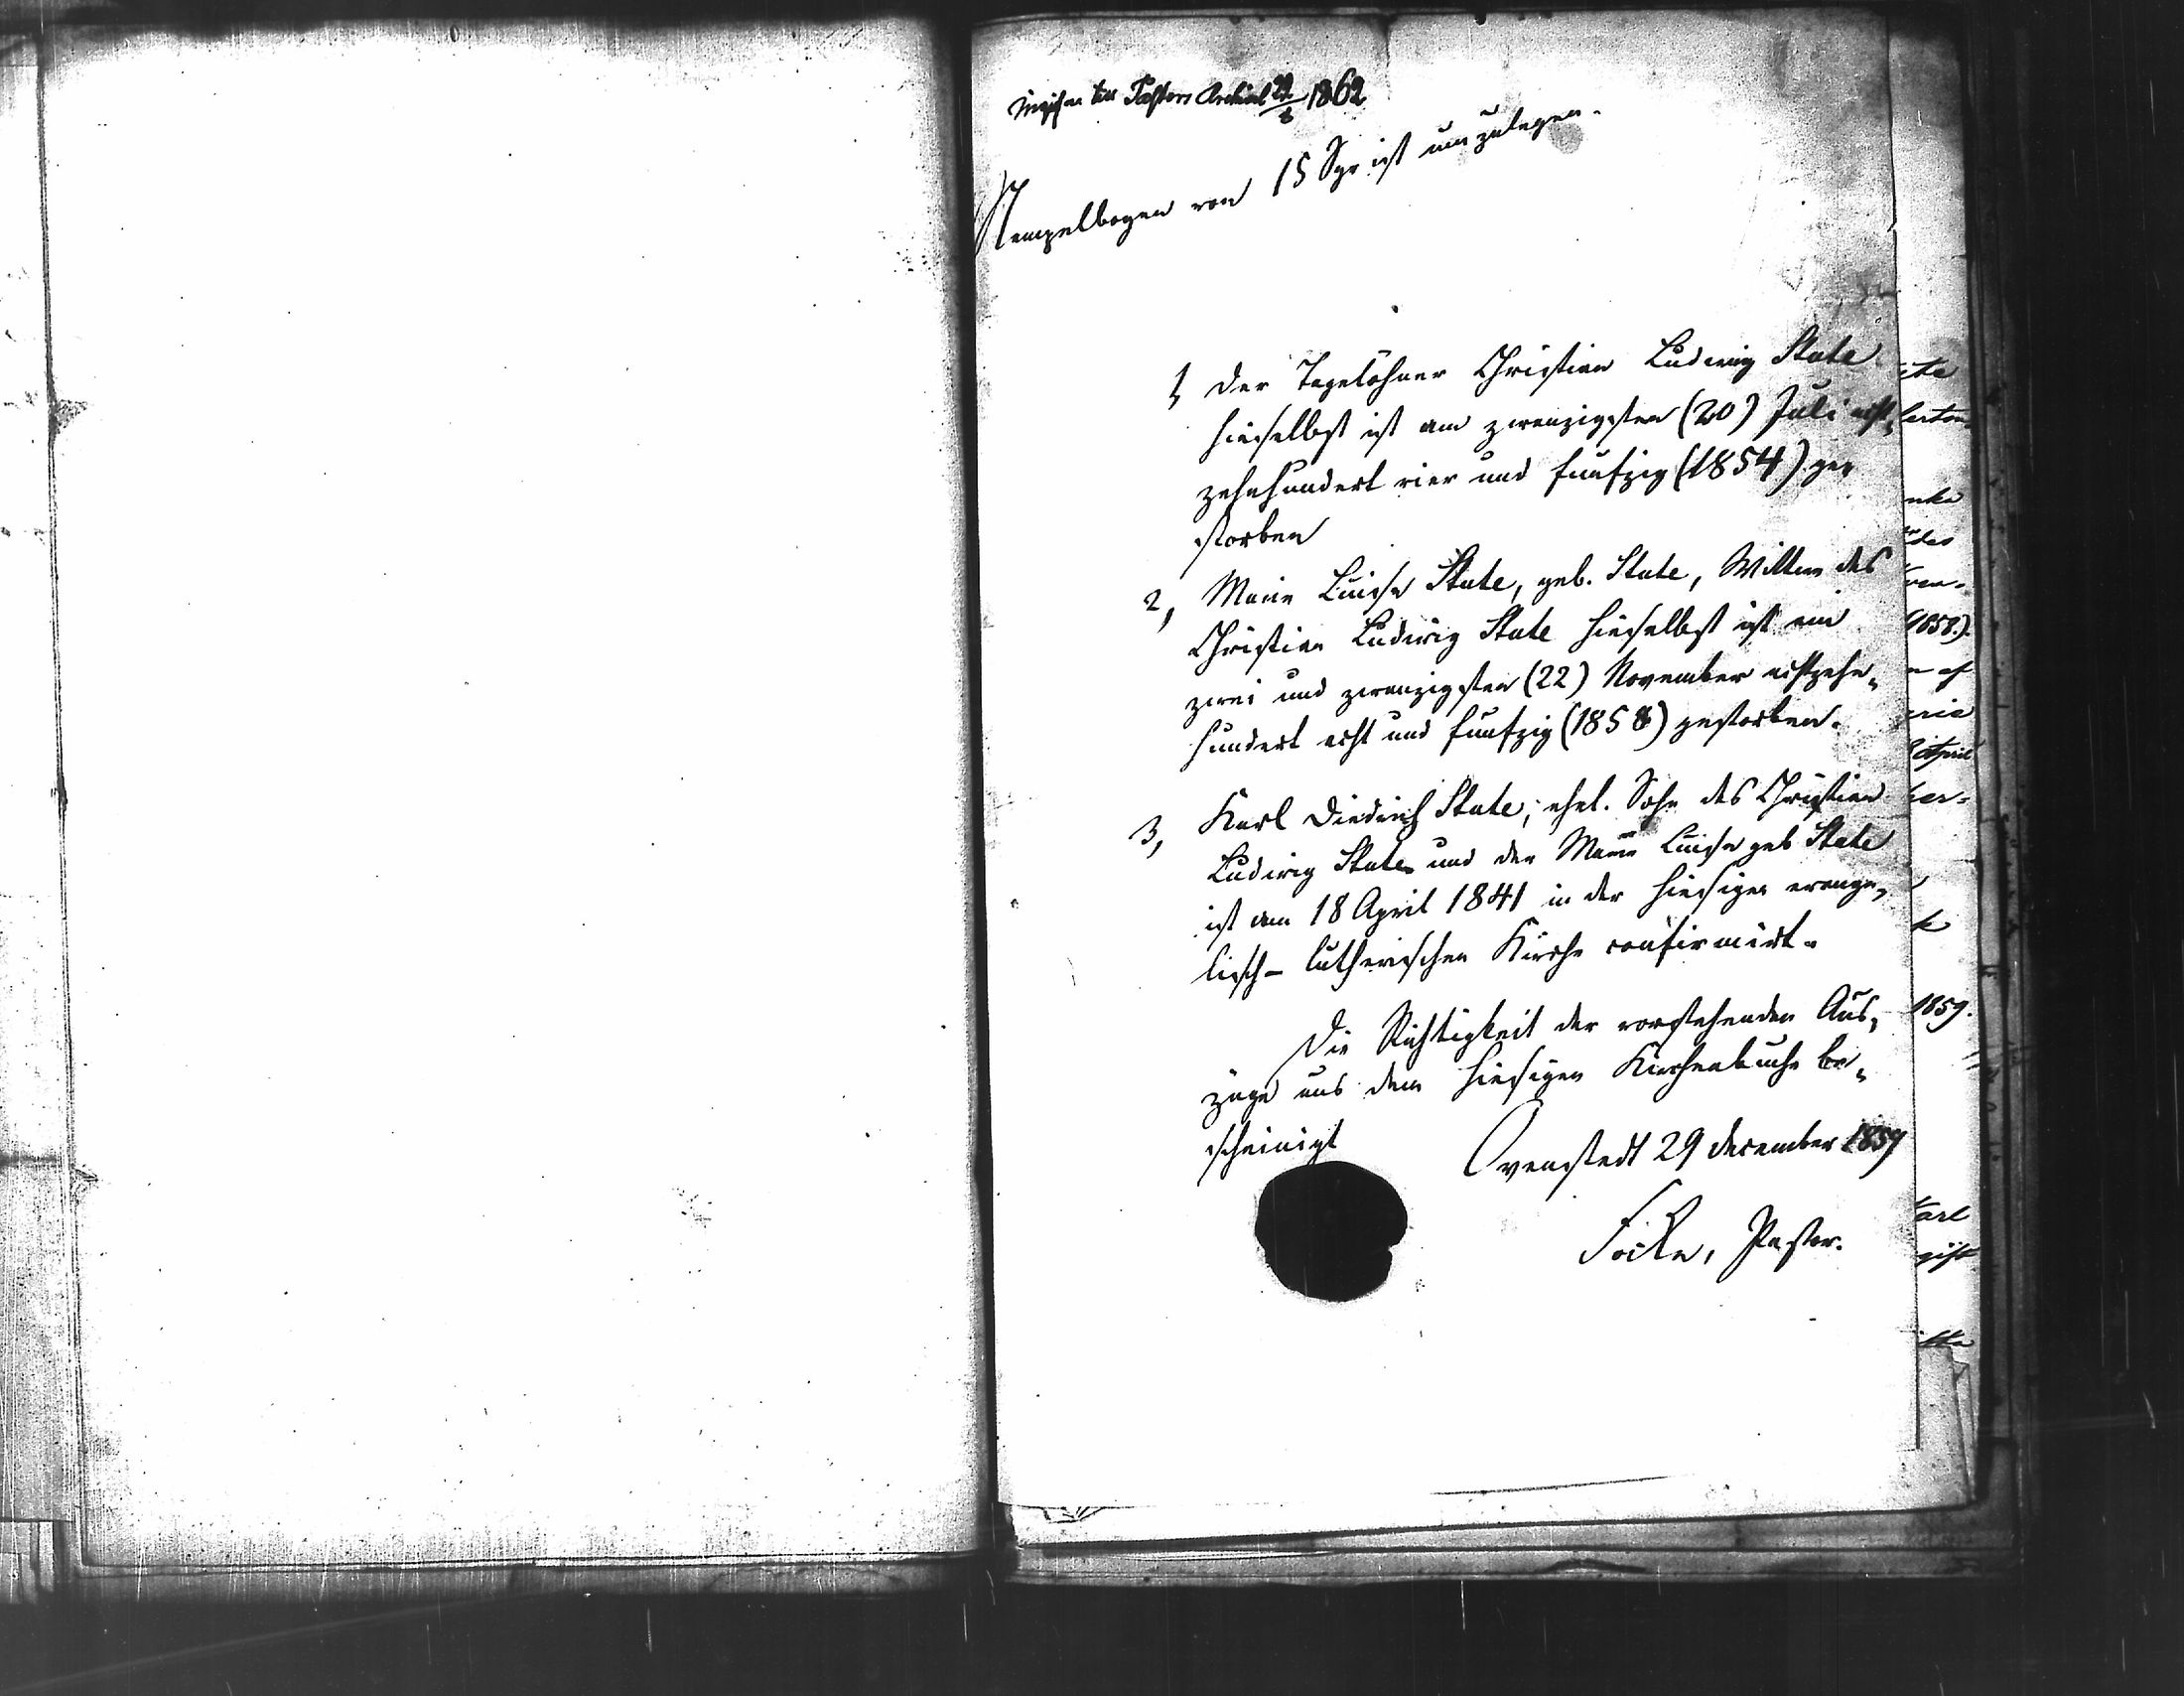 1862
Stempelbogen von 15 Sgr ist umzulegen.
1, Der Tagelöhner Christian Ludwig Stute
hieselbst ist am zwanzigsten (20) Juli acht,
zehnhundert vier und funfzig (1854) ge,
storben
2, Marie Luise Stute, geb. Stute, Wittwe des
Christian Ludwig Stute hieselbst ist am
zwei und zwanzigsten (22) November achtzehn,
hundert acht und funfzig (1858) gestorben.
3, Karl Diedrich Stute, ehel. Sohn des Christian
Ludwig Stute und der Marie Luise geb Stute
ist am 18 April 1841 in der hiesigen evange,
lisch-lutherischen Kirche confirmirt.
Die Richtigkeit der vorstehenden Aus,
züge aus dem hiesigen Kirchenbuche be,
scheinigt
Ovenstedt 29 December 1859
Pastor.
1858.).
April
1859.
Karl